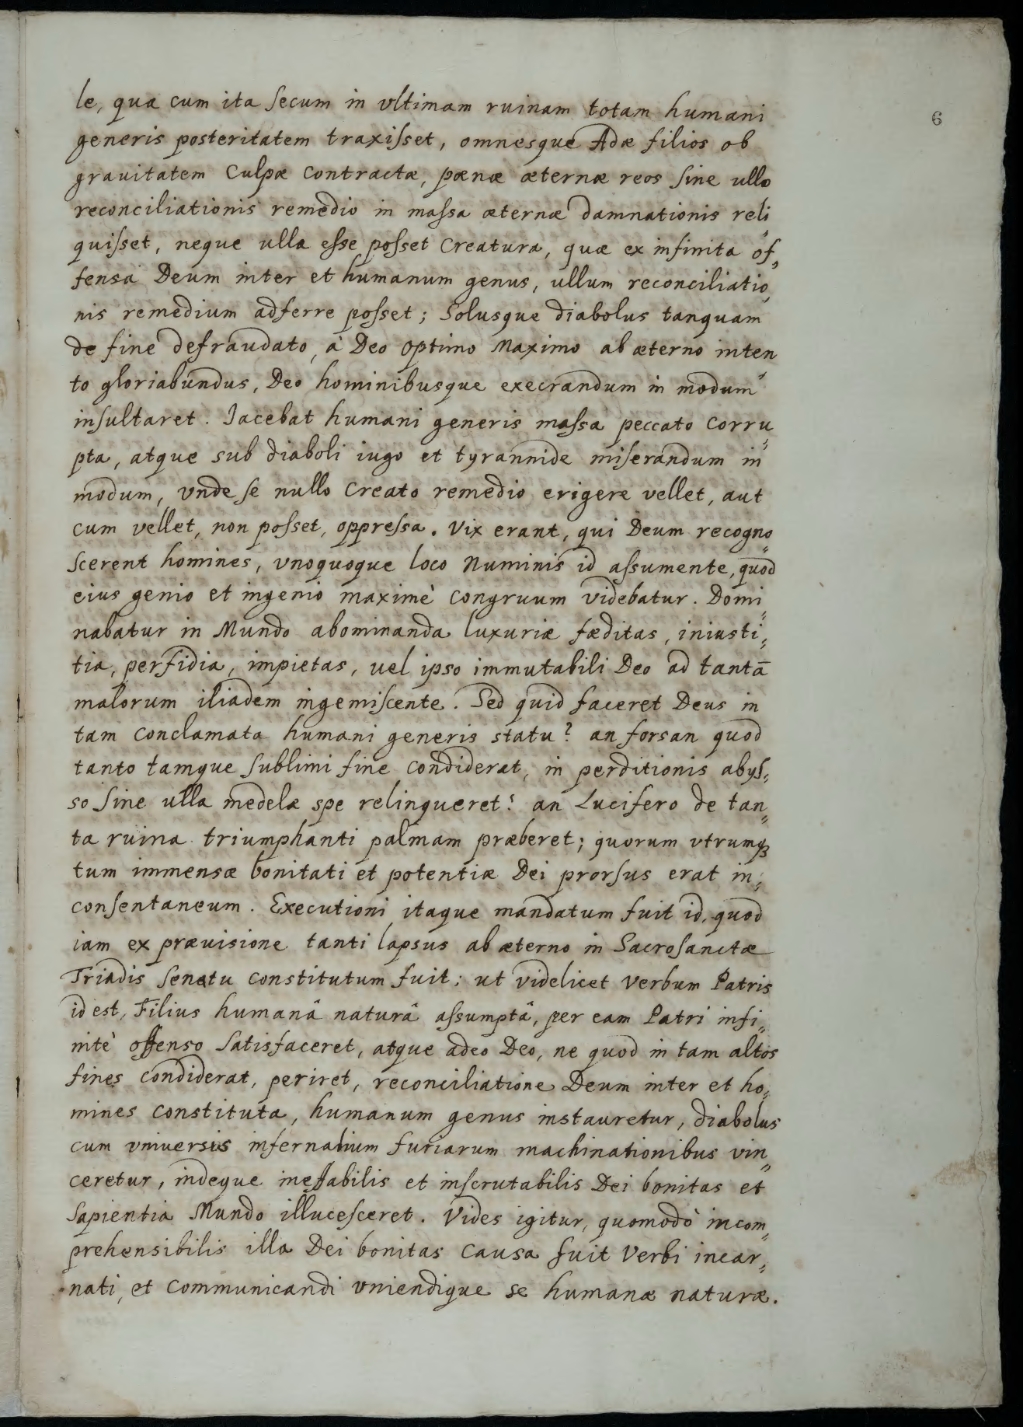 6
le, qua cum ita secum in vltimam ruinam totam humani
generis posteritatem traxisset, omnesque Adæ filios ob
grauitatem Culpæ contractæ, pœnæ æternæ reos sine ullo
reconciliationis remedio in massa æternæ damnationis reli„
quisset, neque ulla esse posset Creatura, quæ ex infinita of„
fensa Deum inter et humanum genus, ullum reconciliatio„
nis remedium adferre posset; Solusque diabolus tanquam
de fine defraudato, à Deo optimo Maximo ab æterno inten„
to gloriabundus, Deo hominibusque execrandum in modum
insultaret. Iacebat humani generis massa peccato corru„
pta, atque sub diaboli iugo et tyrannide miserandum in
modum, vnde se nullo Creato remedio erigere vellet, aut
cum vellet, non posset, oppressa. Vix erant, qui Deum recogno„
scerent homines, vnoquoque loco Numinis id assumente, quod
eius genio et ingenio maximè congruum videbatur. Domi„
nabatur in Mundo abominanda luxuriæ fæditas, iniusti„
tia, perfidia, impietas, uel ipso immutabili Deo ad tantā
malorum iliadem ingemiscente. Sed quid faceret Deus in
tam conclamata humani generis statu? an forsan quod
tanto tamque sublimi fine condiderat, in perditionis abys„
so sine ulla medelæ spe relinqueret? an Lucifero de tan„
ta ruina triumphanti palmam præberet; quorum vtrumqꝫ
tum immensæ bonitati et potentiæ Dei prorsus erat in„
consentaneum. Executioni itaque mandatum fuit id, quod
iam ex præuisione tanti lapsus ab æterno in Sacrosanctæ
Triadis senatu constitutum fuit; ut videlicet Verbum Patris
id est, Filius humanâ naturâ assumptâ, per eam Patri infi„
nitè offenso satisfaceret, atque adeo Deo, ne quod in tam altos
fines condiderat, periret, reconciliatione Deum inter et ho„
mines constituta, humanum genus instauretur, diabolus
cum vniuersis infernalium furiarum machinationibus vin„
ceretur, indeque ineffabilis et inscrutabilis Dei bonitas et
Sapientia Mundo illucesceret. Vides igitur, quomodò incom„
prehensibilis illa Dei bonitas causa fuit Verbi incar„
nati, et communicandi vniendique se humanæ naturæ.